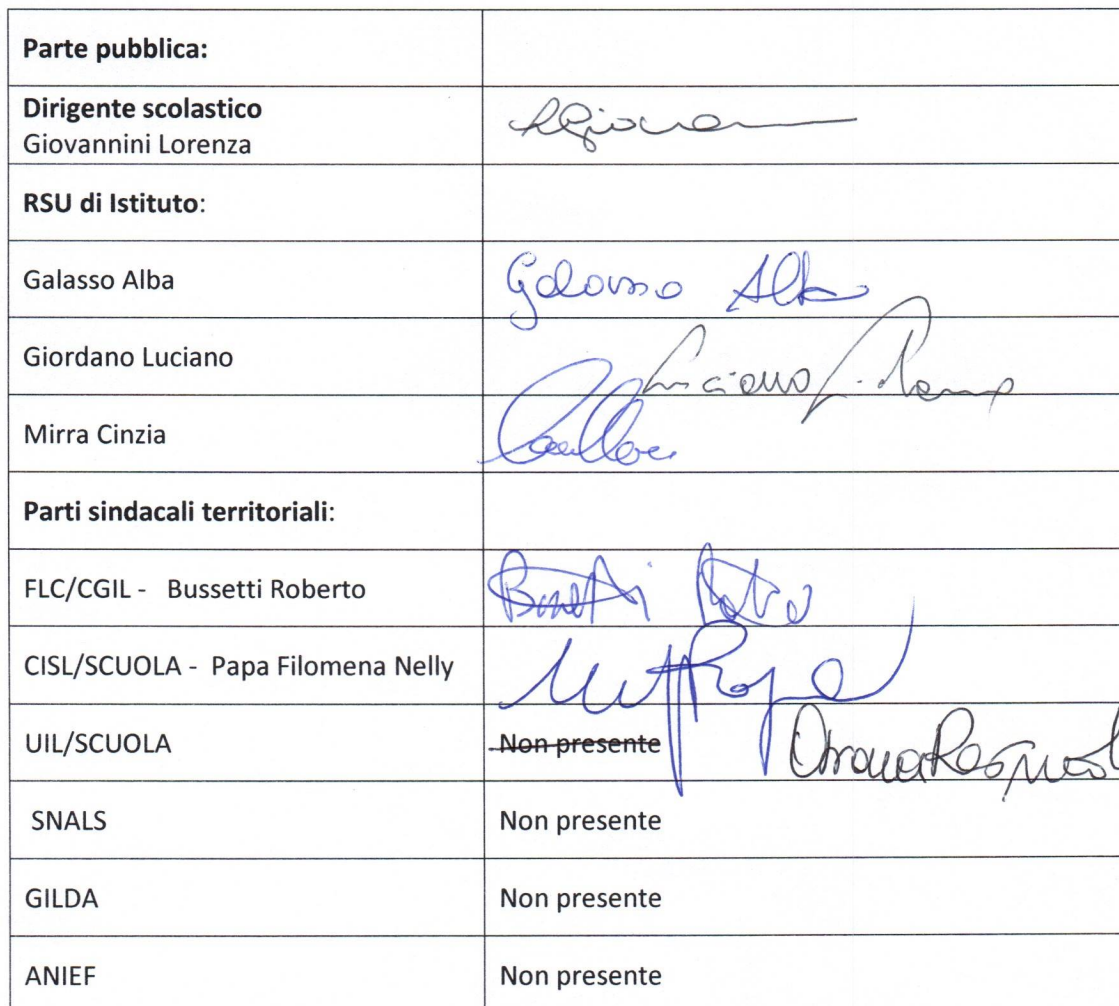 Parte pubblica:
Dirigente scolastico
Giovannini Lorenza
RSU di Istituto:
Galasso Alba Galasso Alba
Giordano Luciano Luciano
Mirra Cinzia
Parti sindacali territoriali:
FLC/CGIL - Bussetti Roberto
CISL/SCUOLA - Papa Filomena Nelly
UIL/SCUOLA Non presente
SNALS Non presente
GILDA Non presente
ANIEF Non presente